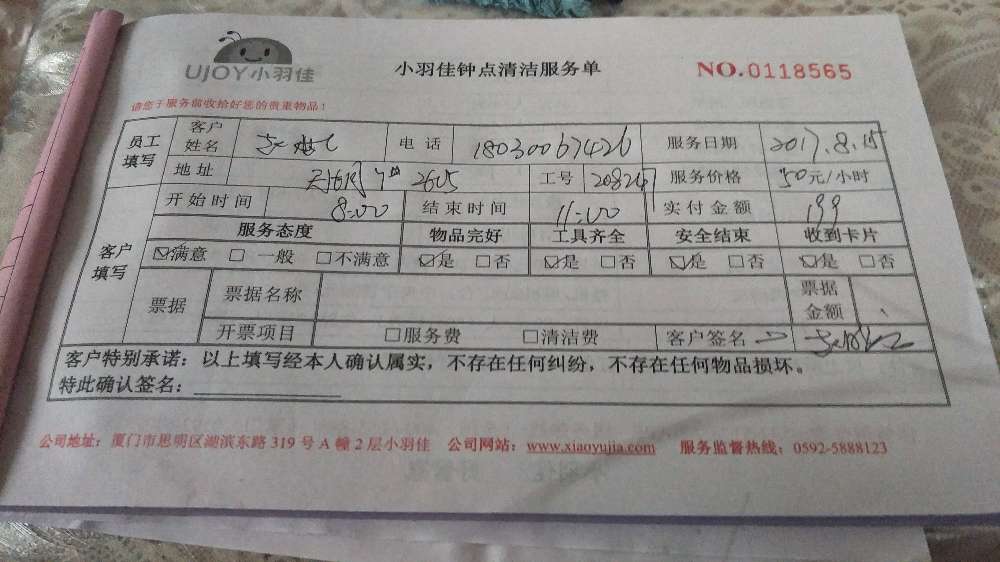 UJOY小羽佳
小羽佳钟点清洁服务单
NO.0118565
请您于服务前收给好您的贵重物品！
员工填写 客户姓名 电话 18030067426 服务日期 2017.8.15
地址 2605 工号 20824 服务价格 50元/小时
客户填写 开始时间 8:00 结束时间 11:00 实付金额 199
服务态度 物品完好 工具齐全 安全结束 收到卡片
☑满意 □一般 □不满意 ☑是 □否 ☑是 □否 ☑是 □否 ☑是 □否
票据 票据名称 票据金额
开票项目 □服务费 □清洁费 客户签名
客户特别承诺：以上填写经本人确认属实，不存在任何纠纷，不存在任何物品损坏。
特此确认签名：
公司地址：厦门市思明区湖滨东路319号A幢2层小羽佳 公司网站：www.xiaoyujia.com 服务监督热线：0592-5888123